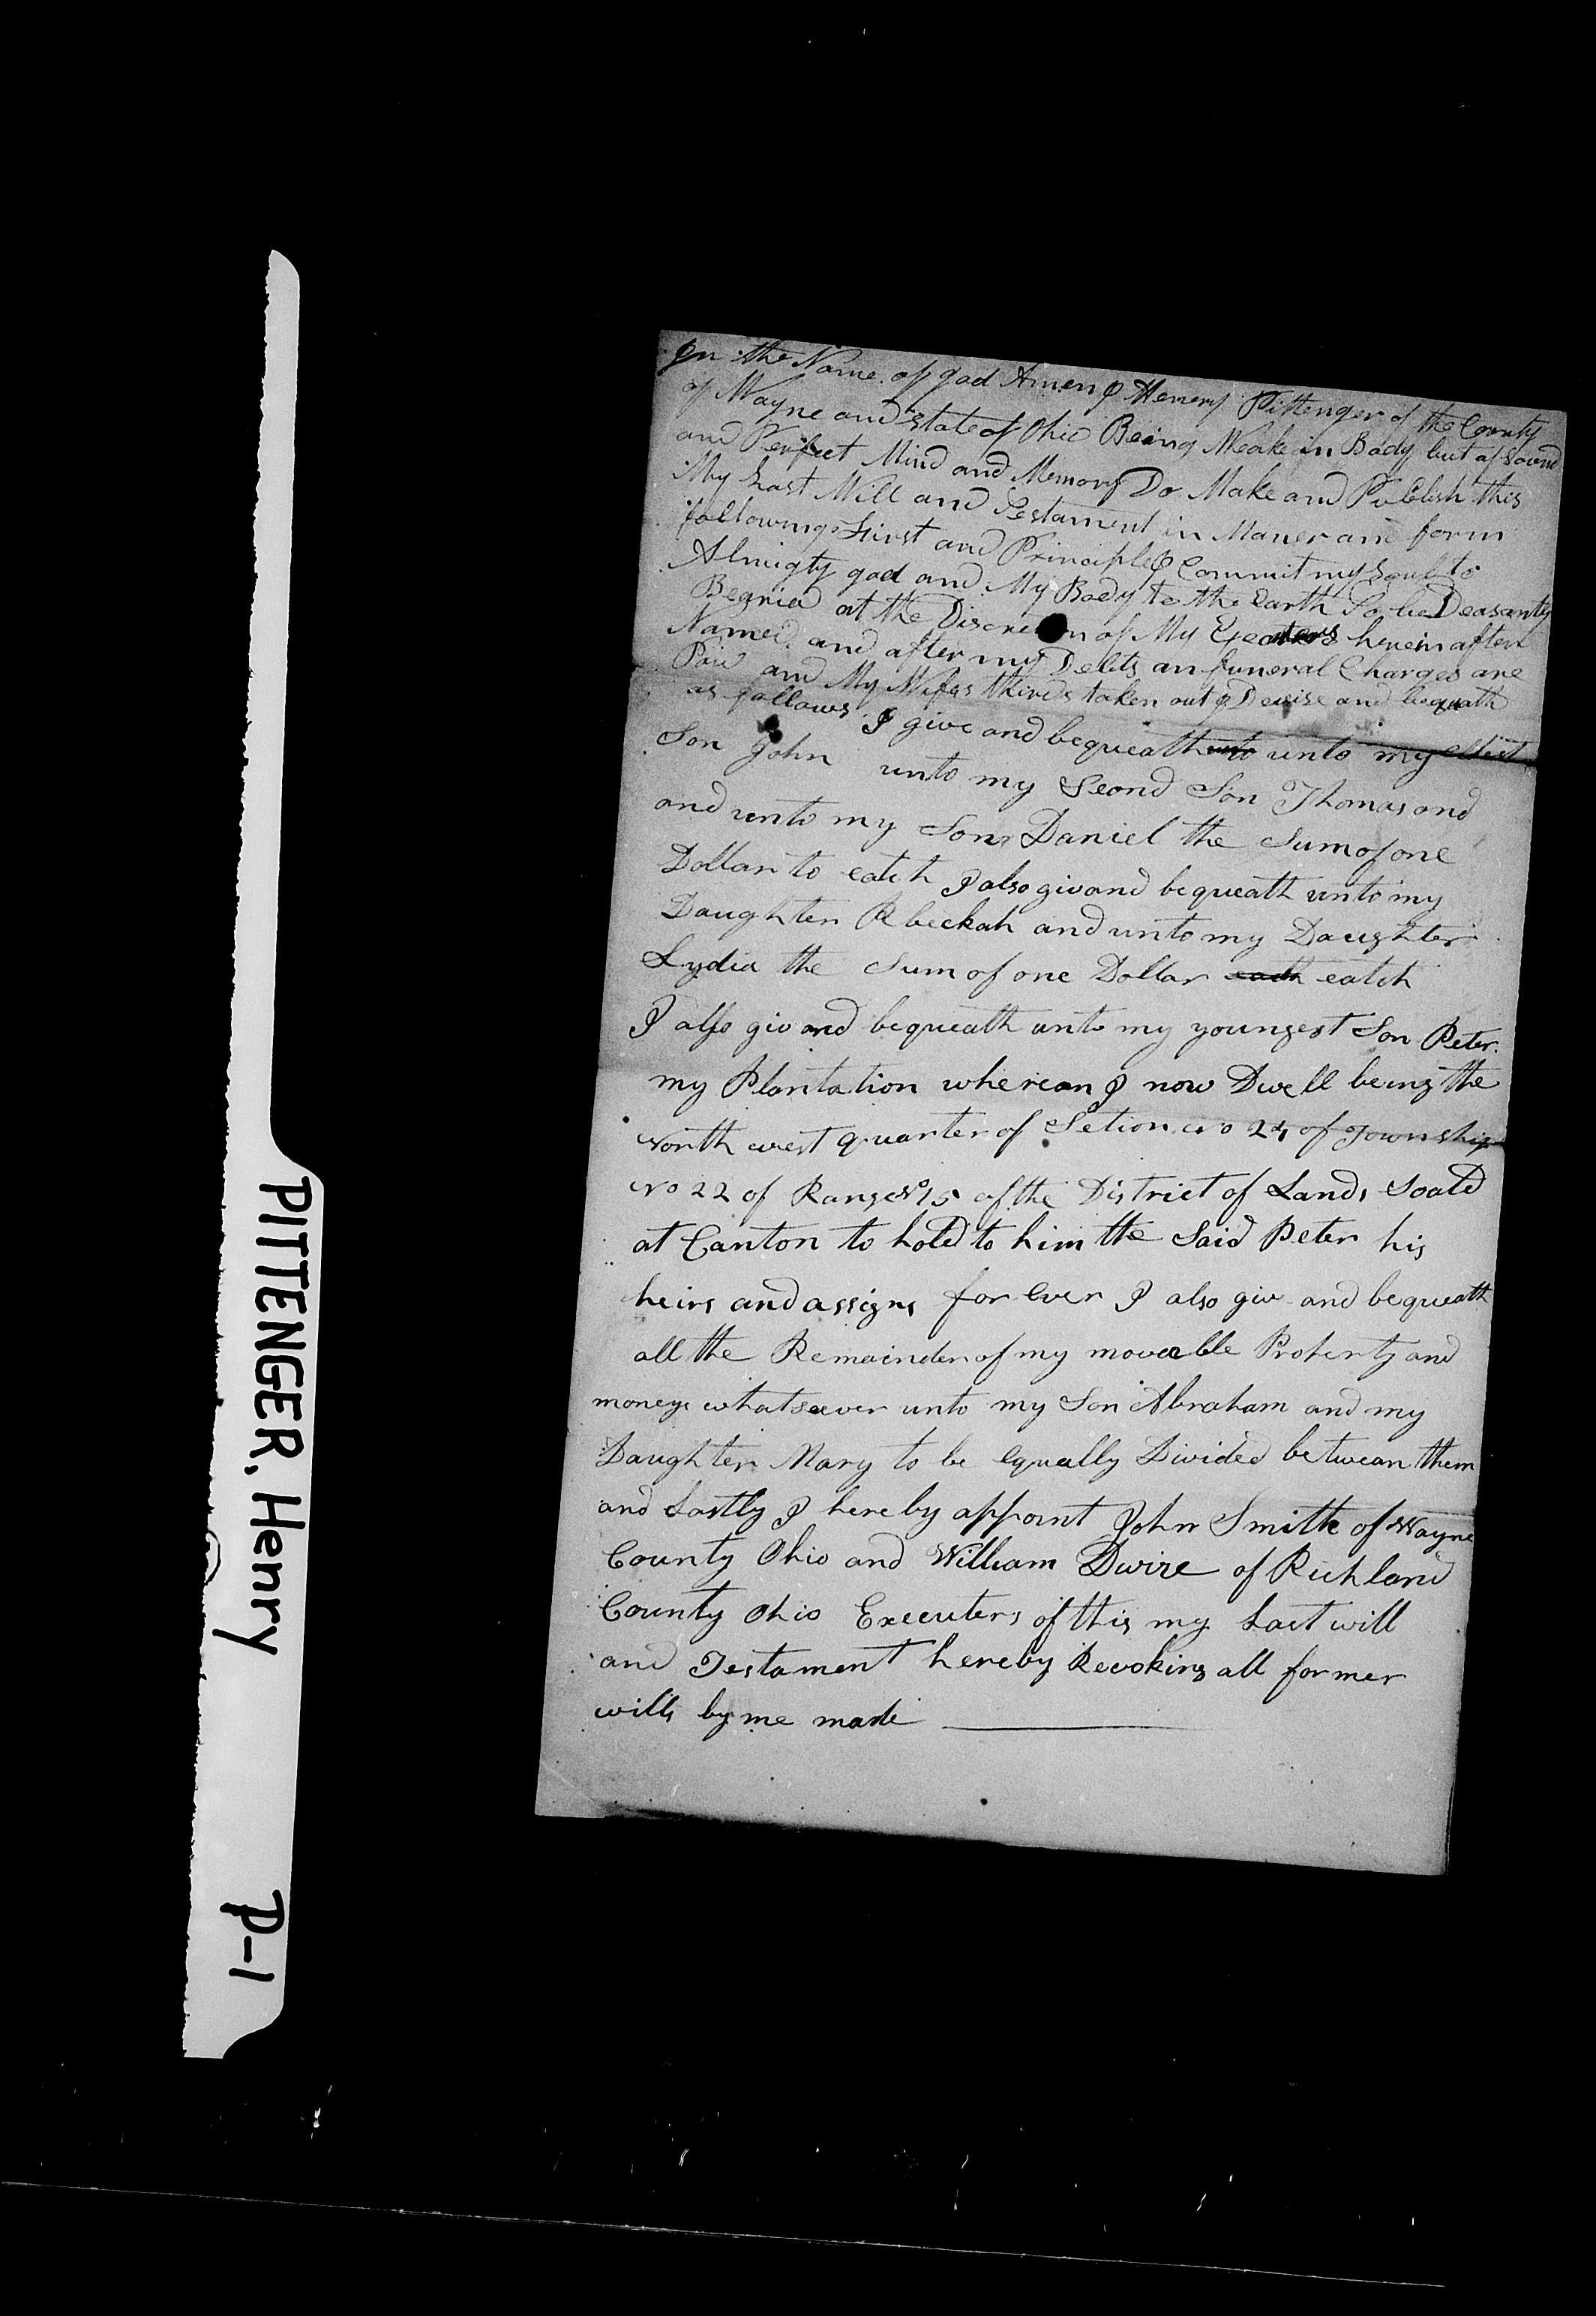 PITTENGER, Henry P-1
In the Name of god Amen I Henery Pittenger of the County
of Wayne and State of Ohio Being Weake in Body but of sound
and Perfect Mind and Memory Do Make and Publish this
My Last Will and Testament in Maner and form
following First and Principle I Commit my Soul to
Almigty god and My Body to the Earth to be Deasantly
Beqried at the Discretion of My herein after
Named and after my Debts an funeral Charges are
Paid and My Wifes thirds taken out I Devise and bequath
as follows I give and bequeath unto unto my eldest
Son John unto my Seond Son Thomas and
and unto my Son Daniel the Sum of one
Dollar to eatch I also giv and bequeath unto my
Daughter Rbeckah and unto my Daughter
Lydia the Sum of one Dollar each eatch
I also giv and bequeath unto my youngest Son Peter
my Plantation whereon I now Dwell being the
North west quarter of Setion No 24 of Township
No 22 of Range No 15 of the District of Lands Soald
at Canton to hold to him the Said Peter his
heirs and assigns for ever I also giv and bequeath
all the Remainder of my moveable Property and
moneys whatsoever unto my Son Abraham and my
Daughter Mary to be Equally Divided betwean them
and Lastly I hereby appoint John Smith of Wayne
County Ohio and William Dwire of Richland
County Ohio Executers of this my Last will
and Testament hereby Revoking all former
wills by me made